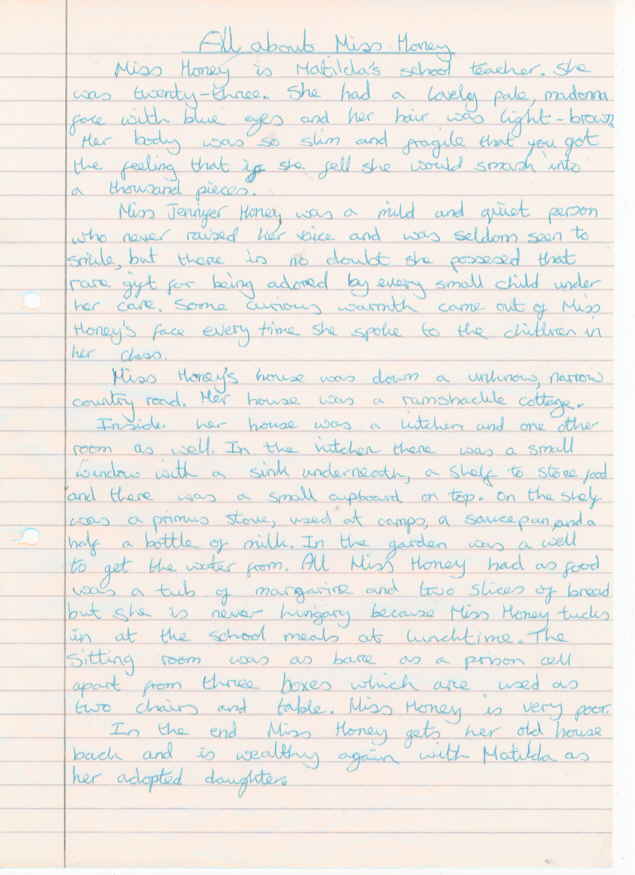 All about Miss Honey
Miss Honey is Matilda's school teacher. She
was twenty-three. She had a lovely pale, madonna
face with blue eyes and her hair was light-brown
Her body was so slim and fragile that you got
the feeling that if she fell she would smash into
a thousand pieces.
Miss Jennifer Honey was a mild and quiet person
who never raised her voice and was seldom seen to
smile, but there is no doubt she possesed that
rare gift for being adored by every small child under
her care. Some curious warmth came out of Miss
Honey's face every time she spoke to the children in
her class.
Miss Honey's house was down a unknow, narrow
country road. Her house was a ramshackle cottage.
Inside her house was a kitchen and one other
room as well. In the kitchen there was a small
window with a sink underneath, a shelf to store food
and there was a small cupboard on top. On the shelf
was a primus stove, used at camps, a saucepan, and a
half a bottle of milk. In the garden was a well
to get the water from. All Miss Honey had as food
was a tub of margarine and two slices of bread
but she is never hungary because Miss Honey tucks
in at the school meals at lunchtime. The
sitting room was as bare as a prison cell
apart from three boxes which are used as
two chairs and table. Miss Honey is very poor.
In the end Miss Honey gets her old house
back and is wealthy again with Matilda as
her adopted daughter.